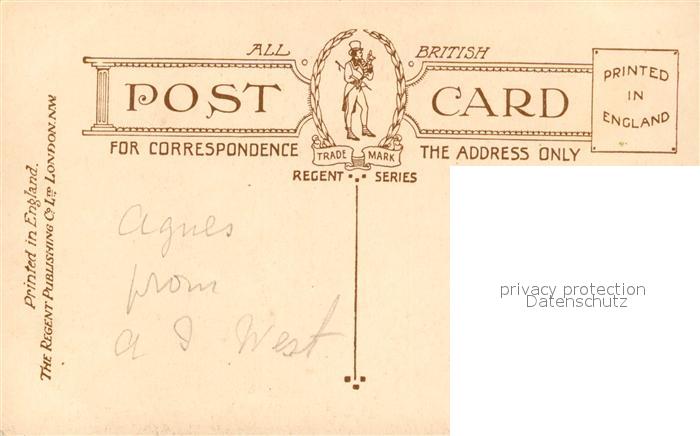 ALL BRITISH
POST CARD
PRINTED
IN
ENGLAND
FOR CORRESPONDENCE THE ADDRESS ONLY
TRADE MARK
REGENT SERIES
Printed in England.
THE REGENT PUBLISHING Co LTD LONDON. N.W.
Agnes
from
A I West
privacy protection
Datenschutz